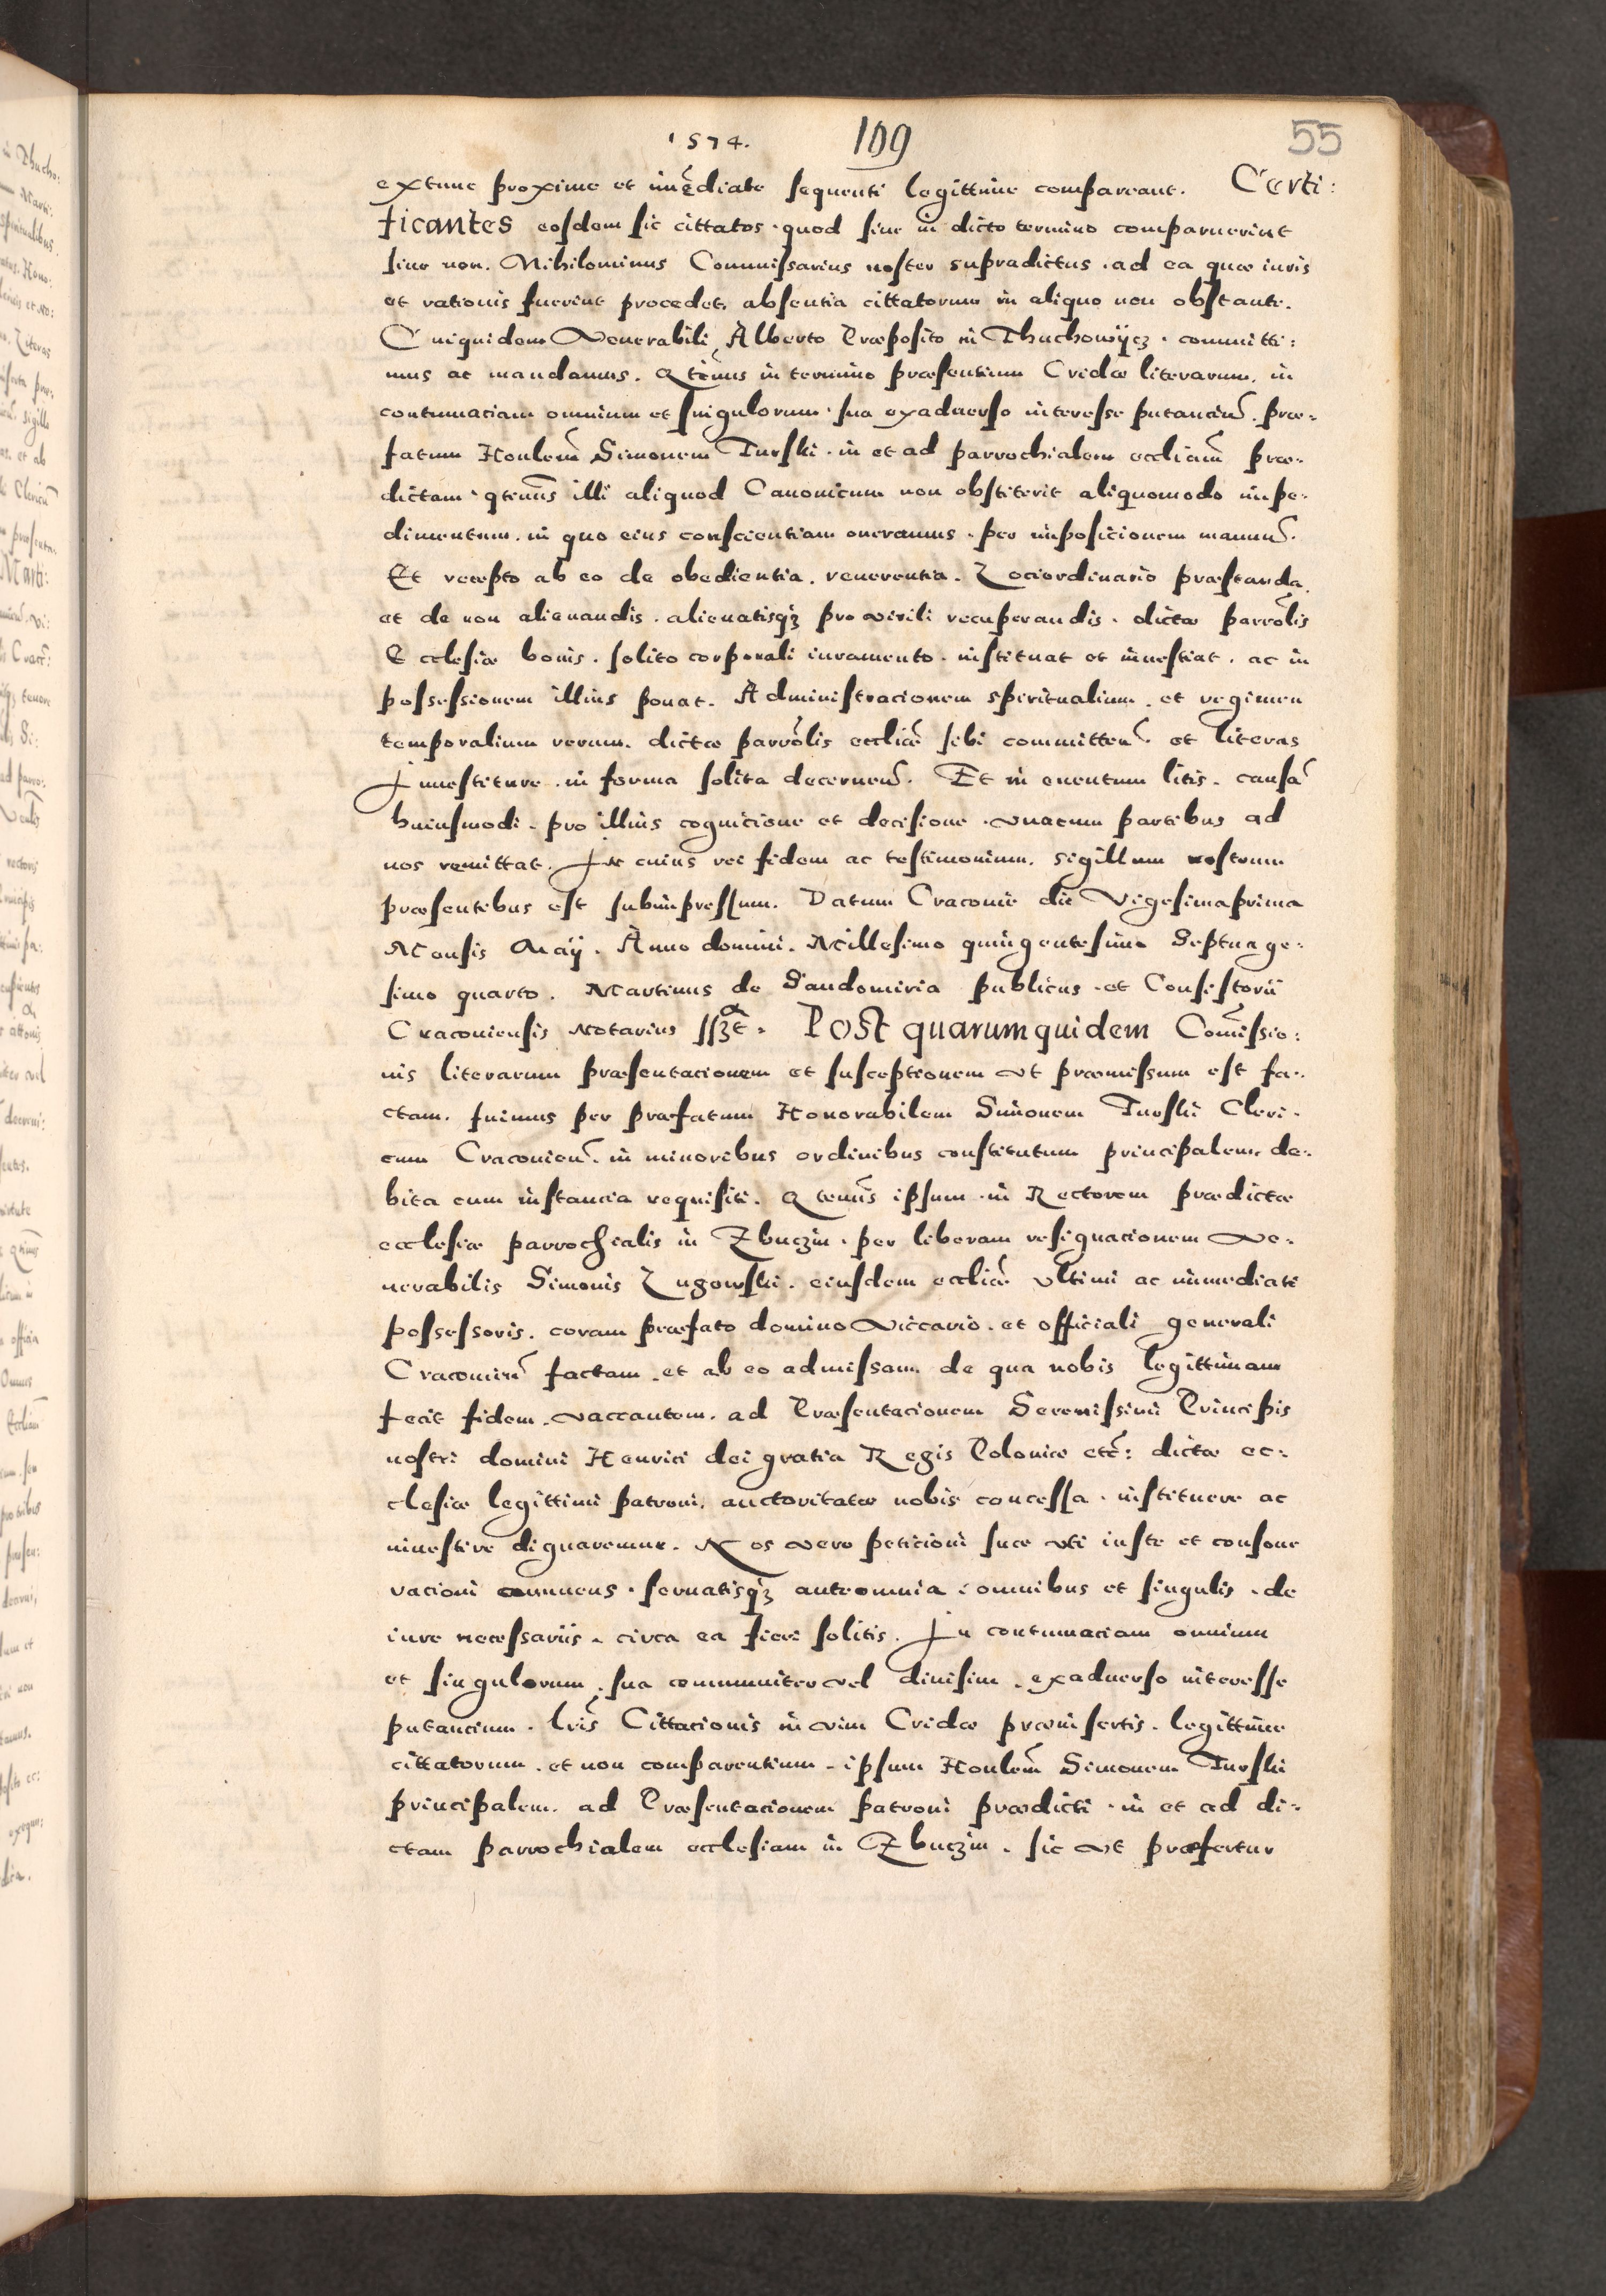 1574. 109 55
extunc proxime et im̃ediate sequenti legittime compareant. Certi:
ficantes eosdem sic cittatos. quod siue in dicto termino comparuerint
siue non. Nihilominus Commissarius noster supradictus. ad ea quæ iuris
et rationis fuerint procedet, absentia cittatorum in aliquo non obstante.
Cuiquidem Venerabili Alberto Præposito in Thuchowÿcz. committi:
mus ac mandamus. Qten̄us in termino præsentium Cridæ literarum. in
contumaciam omnium et singulorum. sua exaduerso interesse putanciu᷈. præ-
fatum Honlem̃ Simonem Turski. in et ad parrochialem eccliam̃ præ-
dictam. qtenus̃ illi aliquod Canonicum non obstiterit aliquomodo impe-
dimentum. in quo eius conscientiam oneramus. per imposicionem manuu᷈.
Et recepto ab eo de obedientia. reuerentia. Lociordinario præstanda.
et de non alienandis. alienatisqȝ pro virili recuperandis. dictæ parrol̃is
Ecclesiæ bonis. solito corporali iuramento. instituat et inuestiat. ac in
possessionem illius ponat. Administracionem spiritualium. et regimen
temporalium rerum. dictæ parrol̃is eccliæ̃ sibi committen᷈. et literas
Inuestiture. in forma solita decernen᷈. Et in euentum litis. causa᷈
huiusmodi. pro illius cognicione et decisione. vnacum partibus ad
nos remittat. In cuius rei fidem ac testimonium. sigillum nostrum
præsentibus est subimpressum. Datum Cracoviæ die Vigesimaprima
Mensis Maÿ. Anno domini. Millesimo quingentesimo Septuage-
simo quarto. Martinus de Sandomiria publicus. et Consistorii
Cracoviensis Notarius ssȝt. Post quarumquidem Com̃issio:
nis literarum præsentacionem et susceptionem vt præmissum est fa-
ctam. fuimus per præfatum Honorabilem Simonem Turski Cleri-
cum Cracovien᷈. in minoribus ordinibus constitutum principalem. de-
bita cum instancia requisiti. Qtenus̃ ipsum. in Rectorem prædictæ
ecclesiæ parrochialis in Zbuczin. per liberam resignacionem Ve-
nerabilis Simonis Zugowski. eiusdem eccliæ̃ vltimi ac immediati
possessoris. coram præfato domino Viccario. et officiali generali
Cracovien᷈ factam. et ab eo admissam. de qua nobis legittimam
fecit fidem. vaccantem. ad Præsentacionem Serenissimi Principis
nostri domini Henrici dei gratia Regis Poloniæ etc̃: dictæ ec-
clesiæ legittimi patroni. auctoritate nobis concessa. instituere ac
inuestire dignaremur. Nos vero peticioni suæ vti iuste et consone
racioni annuens. seruatisqȝ anteomnia. omnibus et singulis. de
iure necessariis. circa ea fieri solitis. In contumaciam omnium
et singulorum. sua communiter vel diuisim. exaduerso interesse
putancium. lris̃ Cittacionis in vim Cridæ præinsertis. legittime
cittatorum. et non comparentium. ipsum Honlem̃ Simonem Turski
principalem. ad Præsentacionem patroni prædicti. in et ad di-
ctam parrochialem ecclesiam in Zbuczin. sic vt præfertur